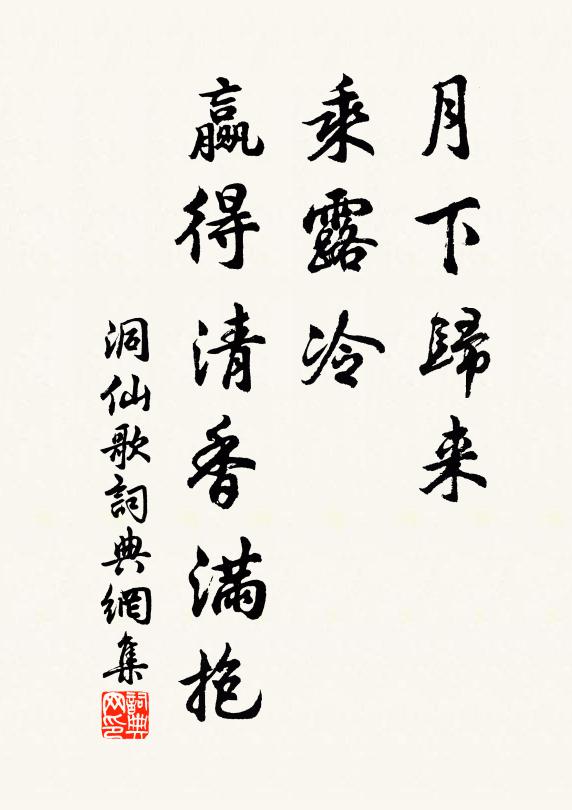 月下歸来
乘露冷
贏得清香滿抱
洞仙歌詞典網集
詞典网印